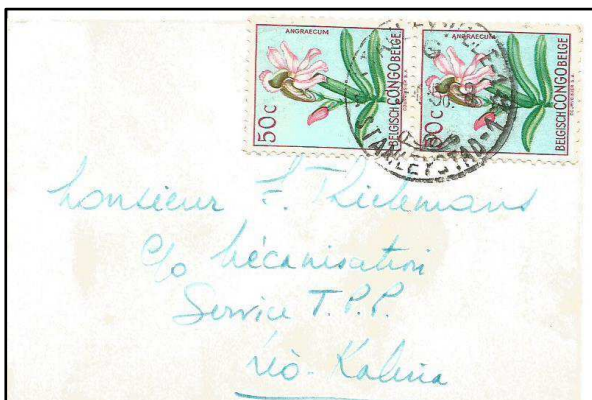 ANGRAECUM
50c
BELGISCH CONGO BELGE
ANGRAECUM
50c
BELGISCH CONGO BELGE
STANLEYSTAD-1
Monsieur F. Tielemans
c/o Mécanisation
Service T.P.P.
Léo-Kalina